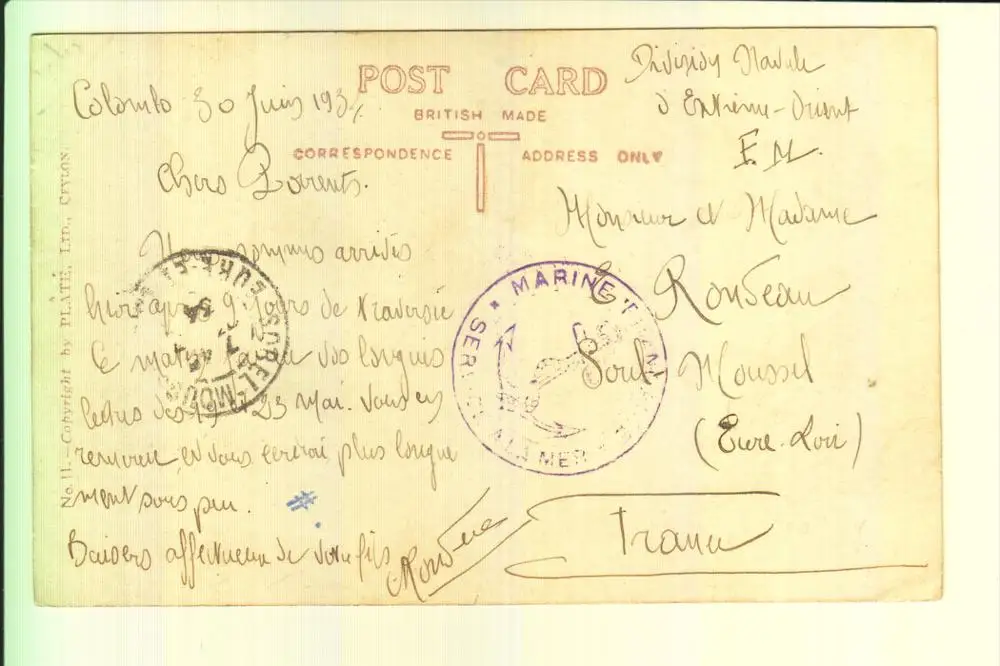 POST CARD
BRITISH MADE
CORRESPONDENCE
ADDRESS ONLY
No. 11.—Copyright by PLÂTÉ, LTD., CEYLON
Colombo 30 Juin 193
Chers Parents.
Nous sommes arrivés
hier après 9 jours de traversée
Ce matin vos longues
lettres des 23 Mai. Vous en
remercie et vous écrirai plus longue
ment sous peu.
Baisers affectueux de votre fils
Rondeau
Division Navale
d'Extrême-Orient
F.M.
Monsieur et Madame
Rondeau
Sorel Moussel
(Eure-Loir)
France
MARINE FRANÇAISE
SERVICE A LA MER
SOREL-MOUSSEL
EURE-&-L